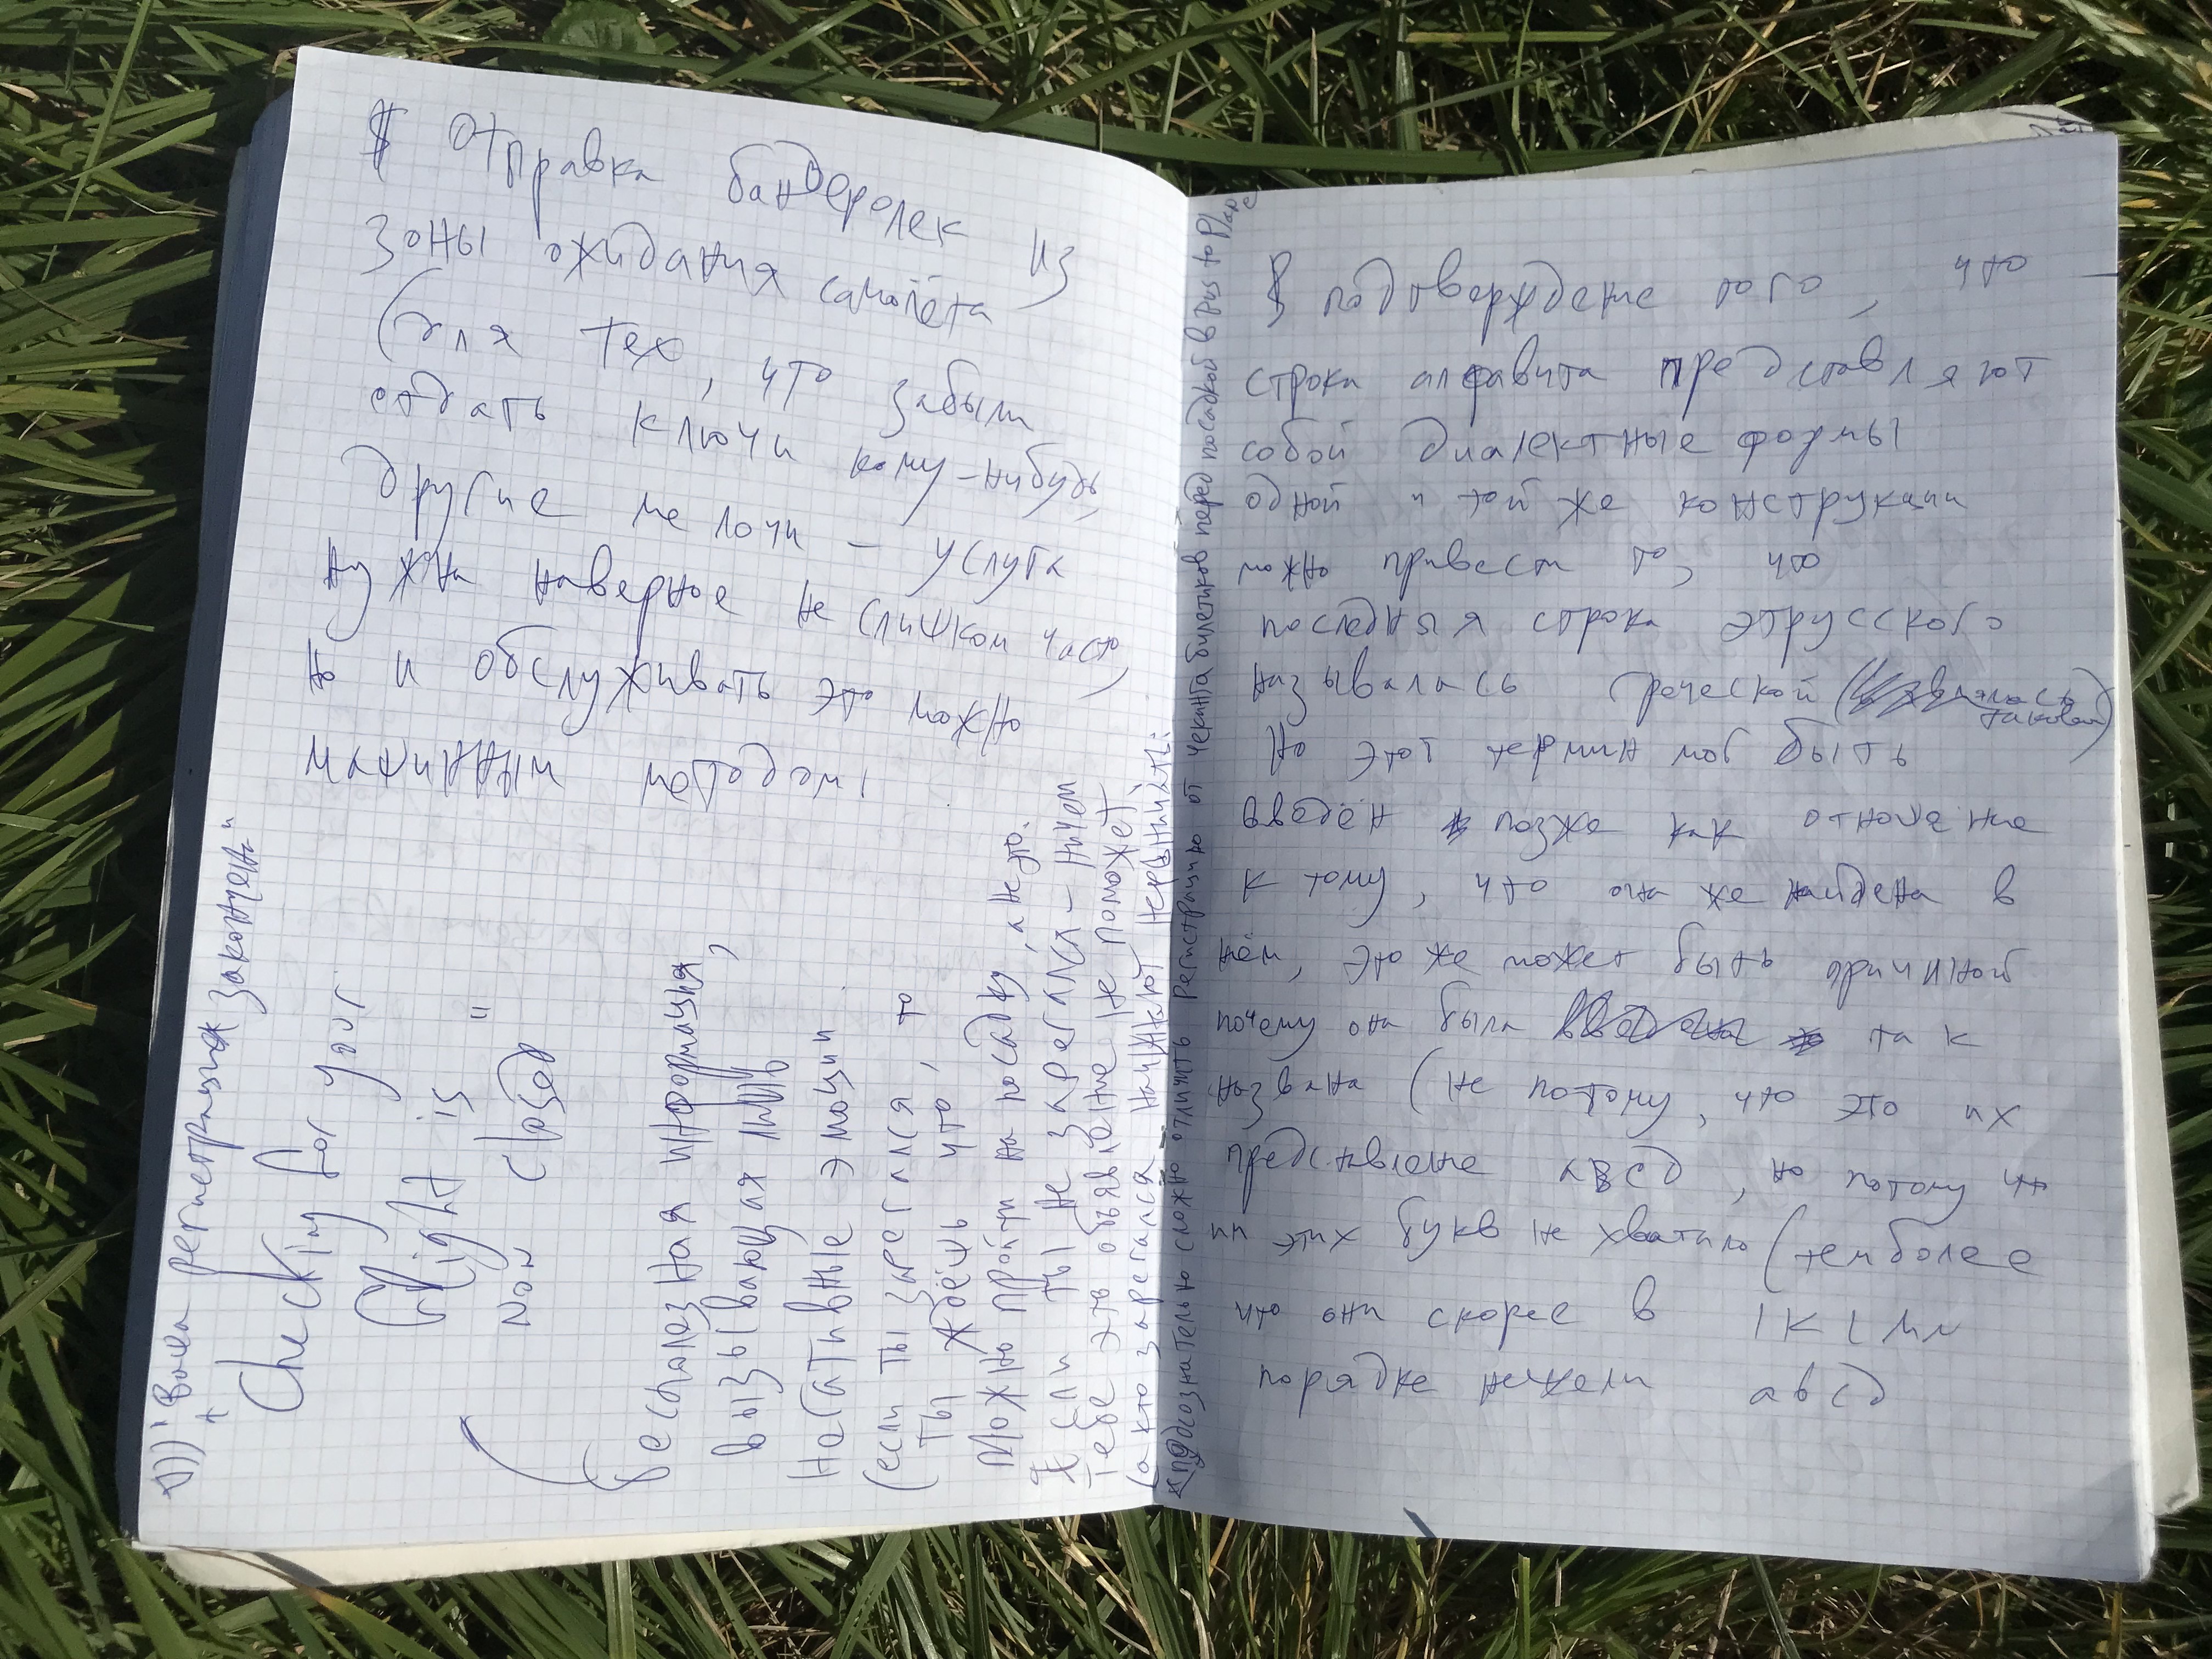 § Отправка бандеролек из
зоны ожидания самолёта
(для тех, кто забыли
отдать ключи кому-нибудь
другие мелочи – услуга
нужна наверное не слишком часто,
но и обслуживать это можно
методом!
"Ваша регистрация закончена"
+
Checking for your
flight is
now closed"
бесполезная информация,
вызывающая лишь
негативные эмоции
(если ты зарегался, то
ты ждёшь что
можно пройти на посадку, а не это.
Если ты не зарегался – ничем
тебе это объявление не поможет,
а кто зарегался начинают нервничать:
<подсознательно сложно отличить регистрацию от чекинга билетиков перед посадкой в bus to plane
§ В подтверждение того, что
строки алфавита представляют
собой диалектные формы
одной и той же конструкции
можно привести то, что
последняя строка этрусского
называлась греческой (
таковой)
Но этот термин мог быть
введён позже как
к тому, что она же найдена в
нём, это же может быть причиной
почему она была так
названа (не потому, что это их
представление abcd, но потому что
им этих букв не хватило (тем более
что они скорее в iklm
порядке нежели abcd